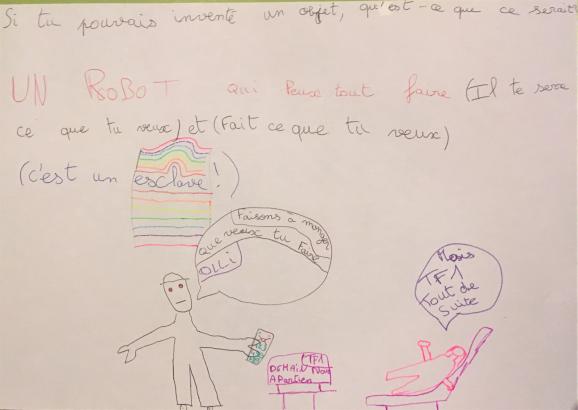 Si tu pouvais inventé un objet, qu'est-ce que ce serait?
UN ROBOT qui Peux tout faire (Il te sera
ce que tu veux) et (Fait ce que tu veux)
(c'est un esclave!)
Faisons à manger
que veux tu Faire
OLLi
Mais
TF1
Tout de
suite
TF1
DEMAiN Nous
APartien